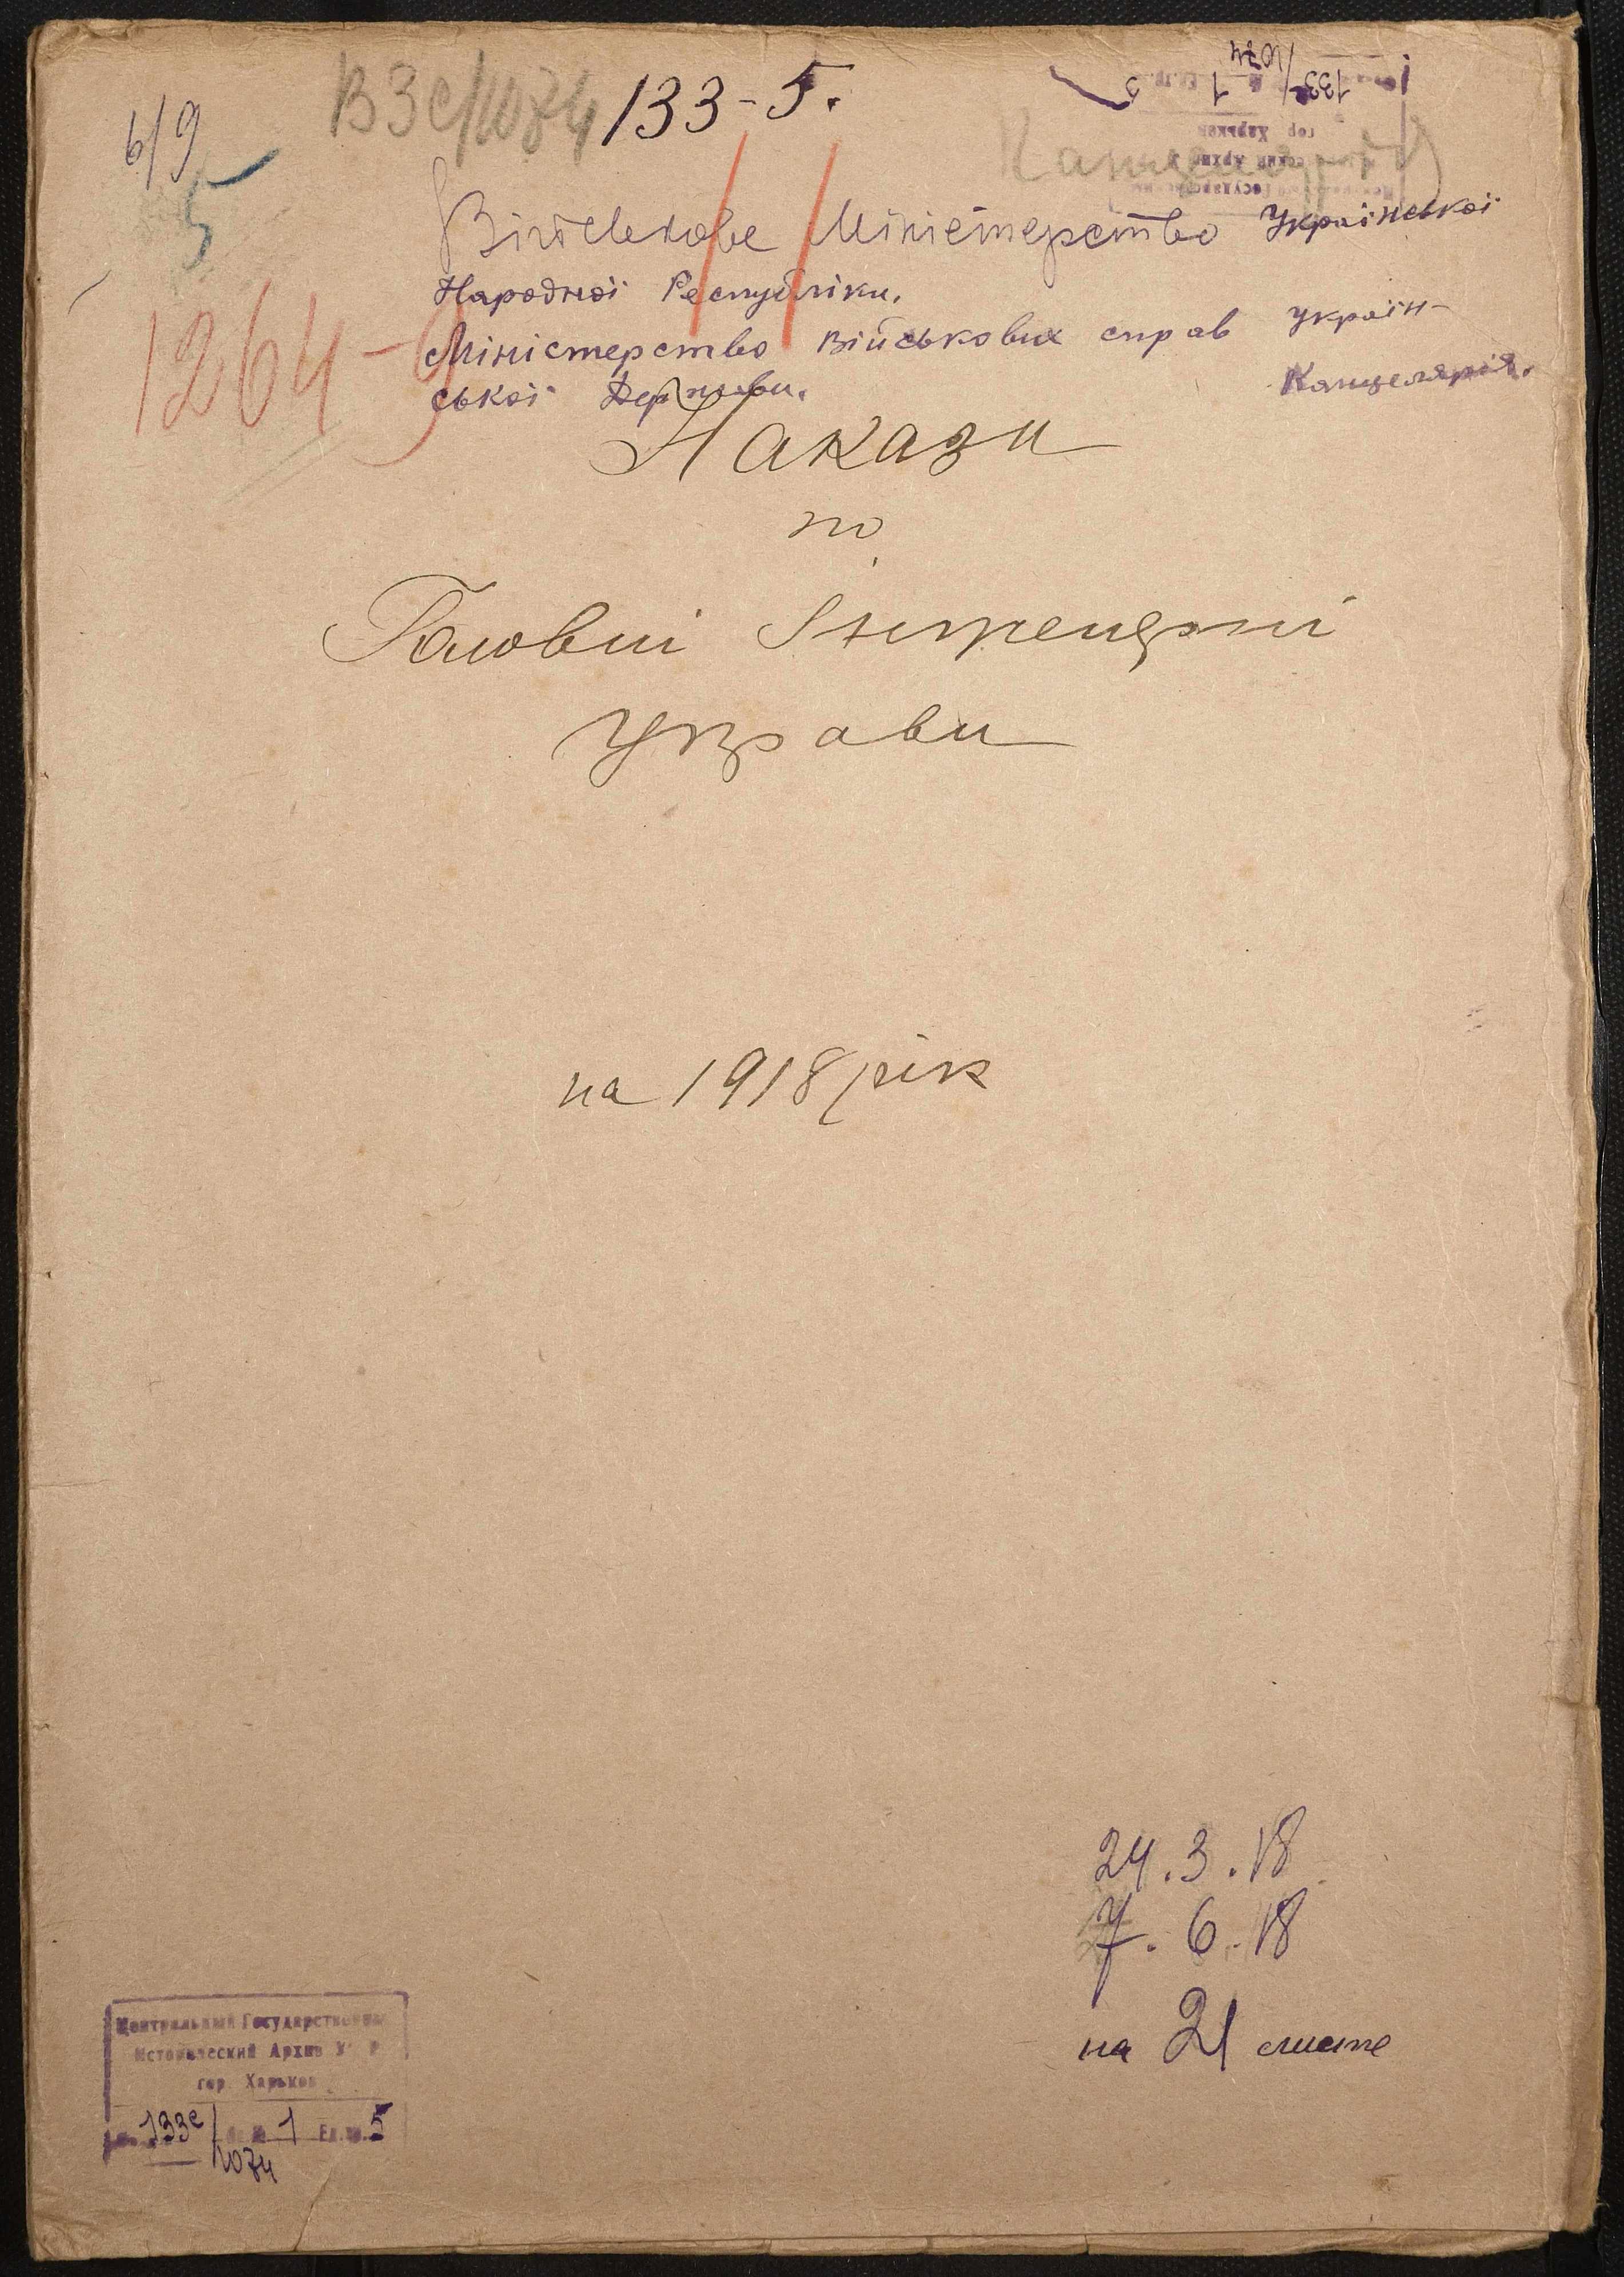 133-5.
б/9
5
1264-9
Військове Міністерство Української
Народної Республіки.
Міністерство Військових справ Україн-
ської Держави. Канцелярія.
Накази
по
Головні Інтенданскі
Управи
на 1918 рік
24.3.18
7.6.18
на 21 листе
Центральный Государственный
Исторический Архив
гор. Харьков
133с/1074 № 1 Ед. хр. 5